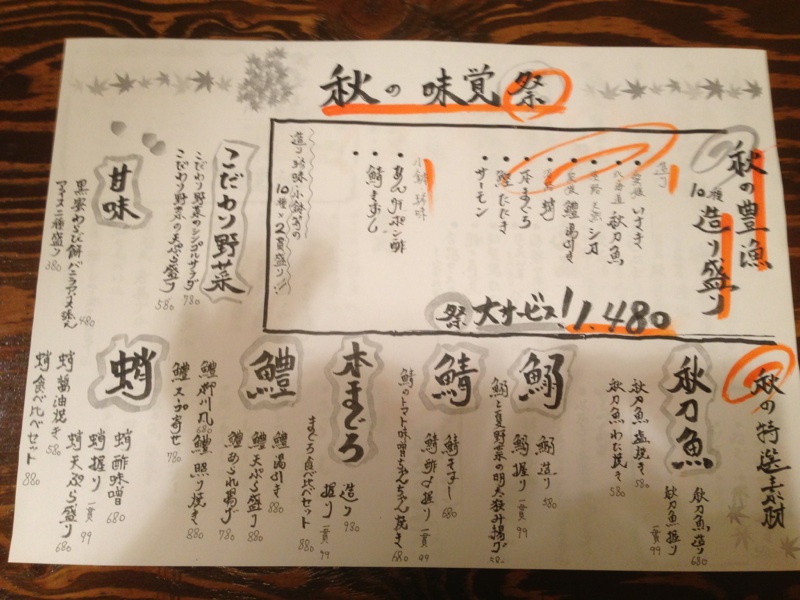 秋の味覚祭
秋の豊漁
10種造り盛り
造り
いさき
秋刀魚
シマ
鱧湯引き
蛸
本まぐろ
鰹たたき
サーモン
小鉢 珍味
あん肝ポン酢
鯖きずし
造り珍味小鉢等の
10種×2貫盛り
祭大サービス!1,480
こだわり野菜
こだわり野菜のシンプルサラダ 780
こだわり野菜の天ぷら盛り 580
甘味
黒蜜わらび餅バニラアイス添え 480
アイス二種盛り 380
秋の特選素材
秋刀魚
秋刀魚造り 680
秋刀魚握り 一貫99
秋刀魚塩焼き 580
秋刀魚わた焼き 580
鰯
鰯造り 580
鰯握り 一貫99
鰯と夏野菜の明太挟み揚げ
鯖
鯖きずし 880
鯖酢〆握り 一貫99
鯖のトマト味噌ちゃんちゃん焼き 680
本まぐろ
造り 980
握り 一貫99
まぐろ食べ比べセット 880
鱧
鱧湯引き 880
鱧天ぷら盛り 880
鱧あられ揚げ 780
鱧柳川風 680
鱧照り焼き 880
鱧スープ寄せ 780
蛸
蛸酢味噌 680
蛸握り 一貫99
蛸天ぷら盛り 680
蛸醤油焼き 580
蛸食べ比べセット 880